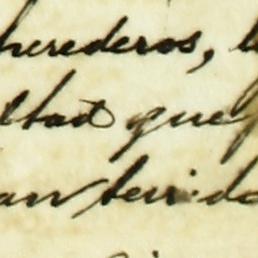 herederos,
ltad que
an teni do